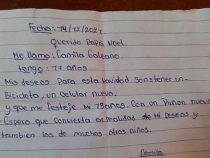 Fecha: 14/12/2021
Querido Papá Noel.
Me llamo: Camila Galeano
tengo: 77 años
Mis deseos para esta navidad son tener un
Bicicleta, un Celular nuevo.
y que me festeje mi 73 años. Con un Piñon nuevo
Espero que Convierta en realidad de Mi Deseos y
tambien los de muchos otros niños.